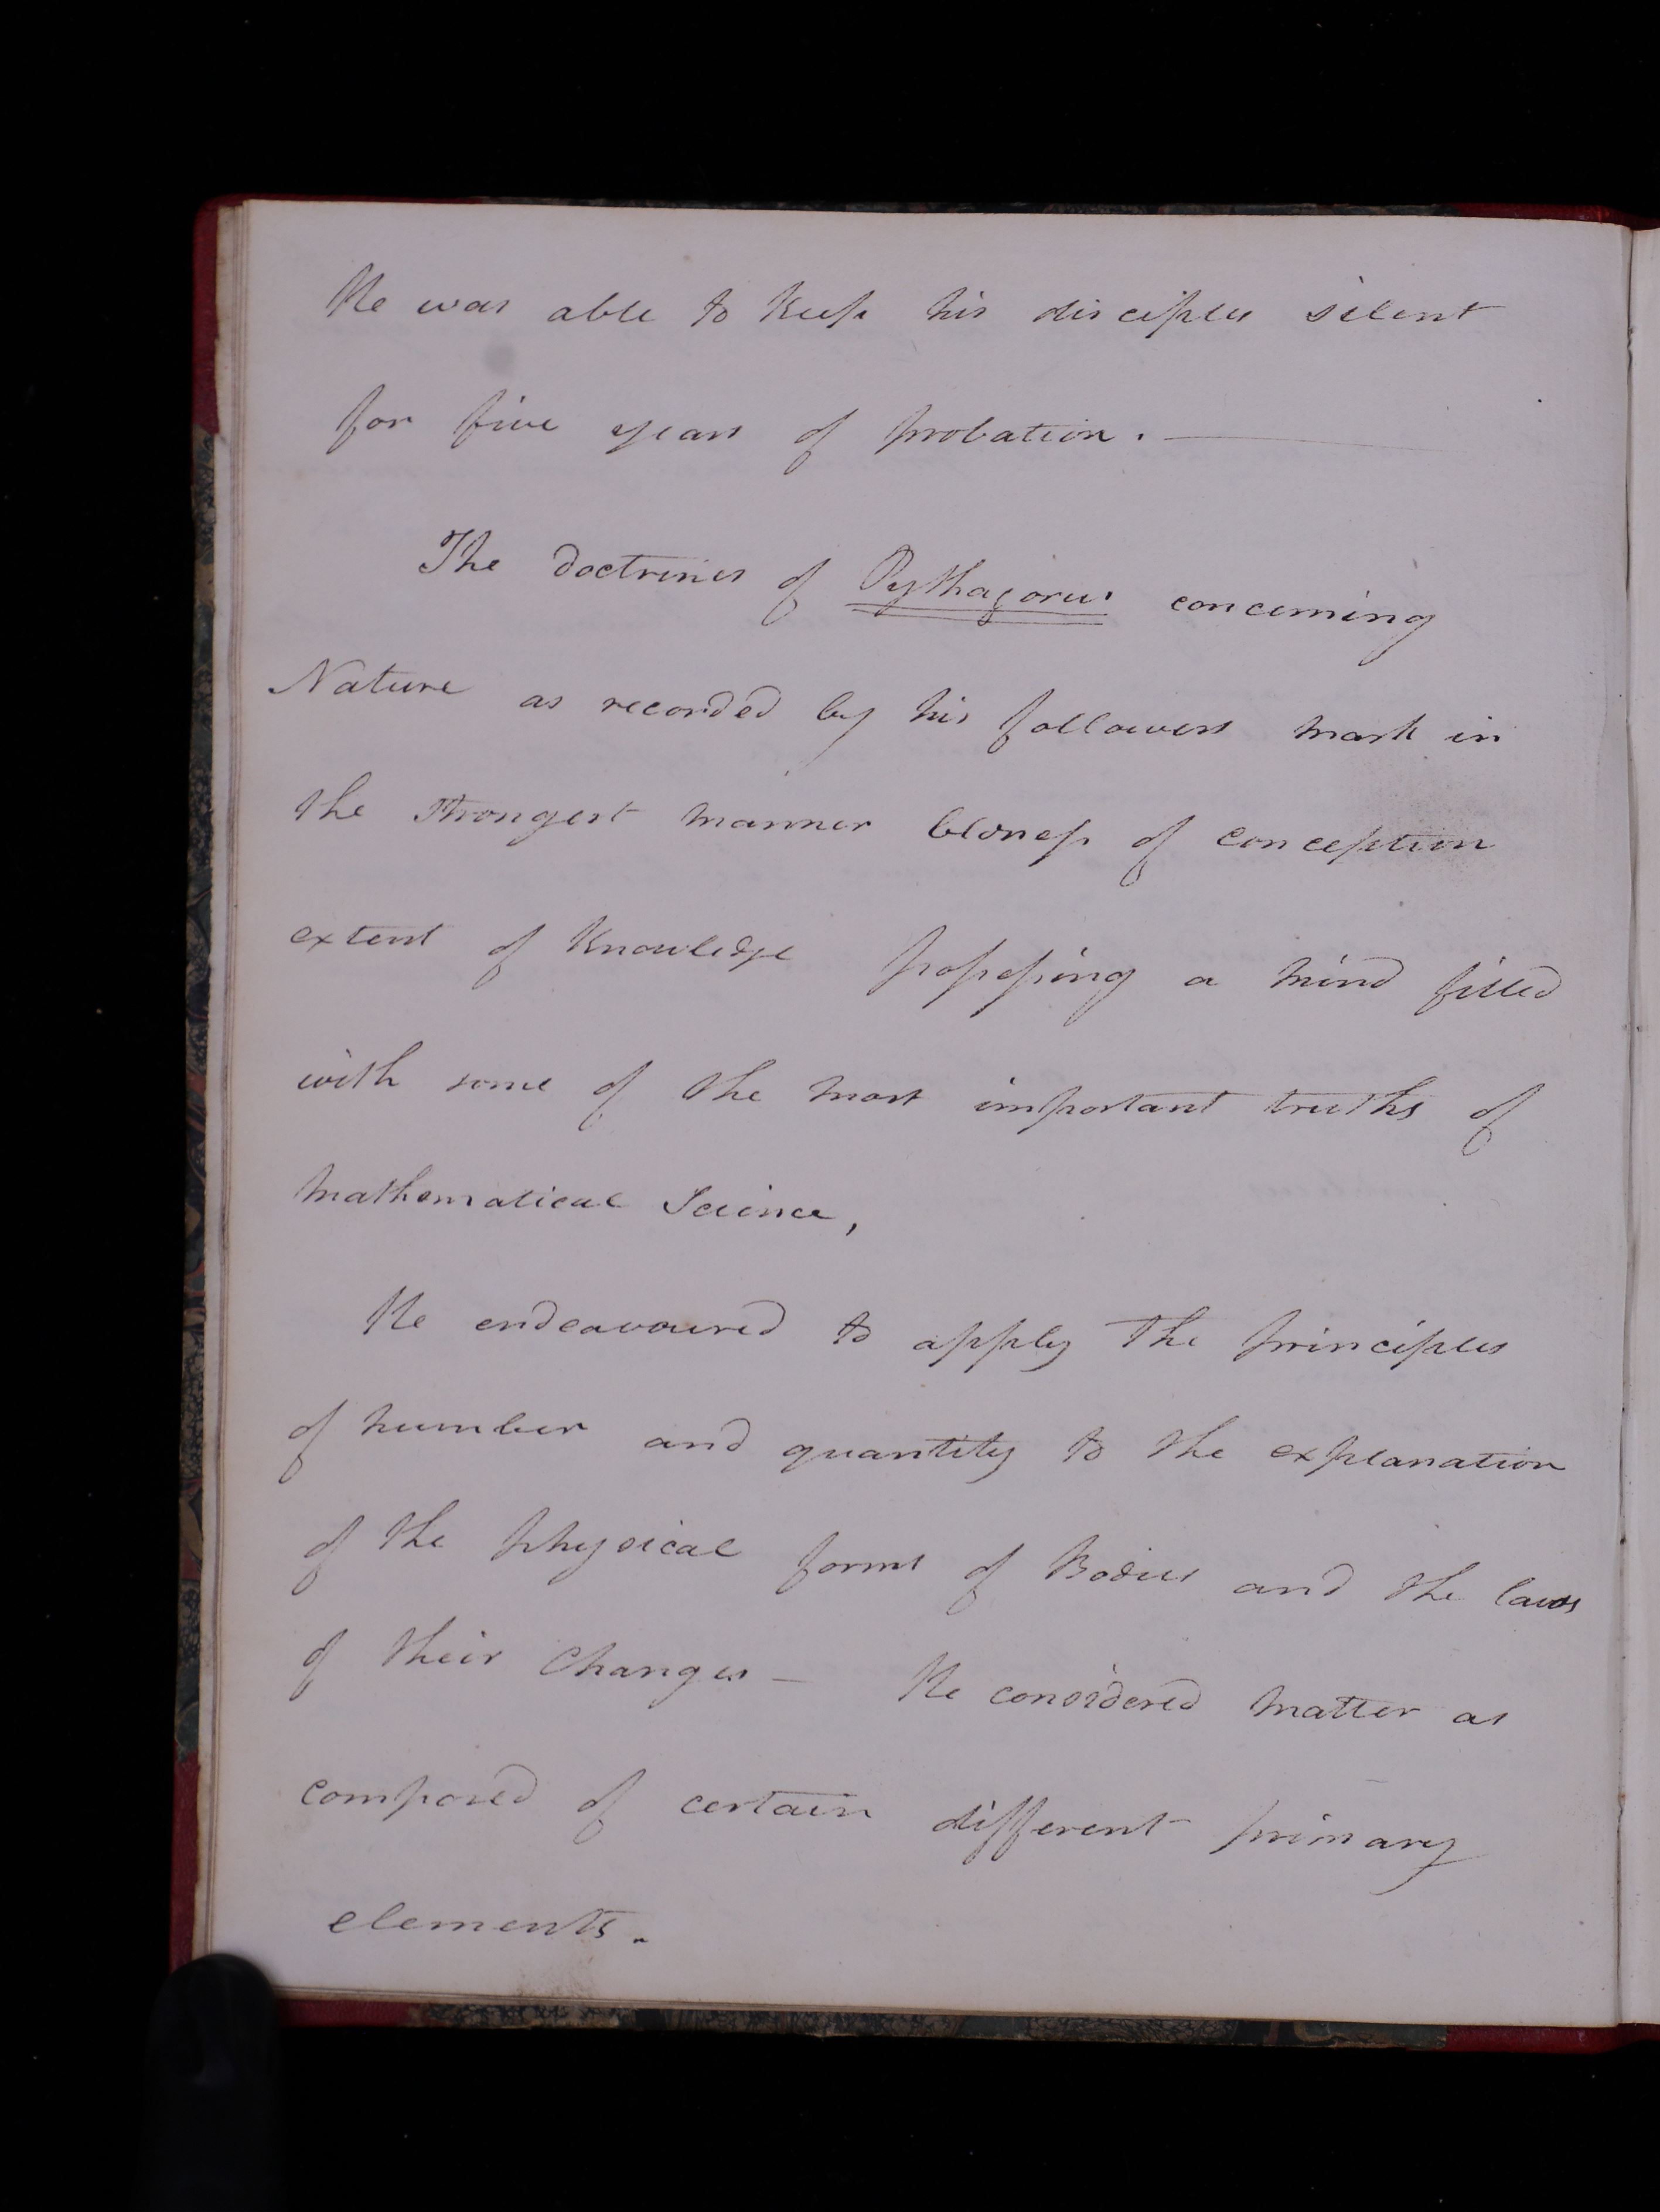 He was able to keep his disciples silent
for five years of probation. —
The doctrines of Pythagorus concerning
Nature as recorded by his followers mark in
the strongest manner of conception
extent of Knowledge possessing a mind filled
with some of the most important truths of
mathematical Science,
He endeavoured to apply the principles
of number and quantity to the explanation
of the physical forms of Bodies and the laws
of their Changes — He considered matter as
composed of certain different primary
elements.